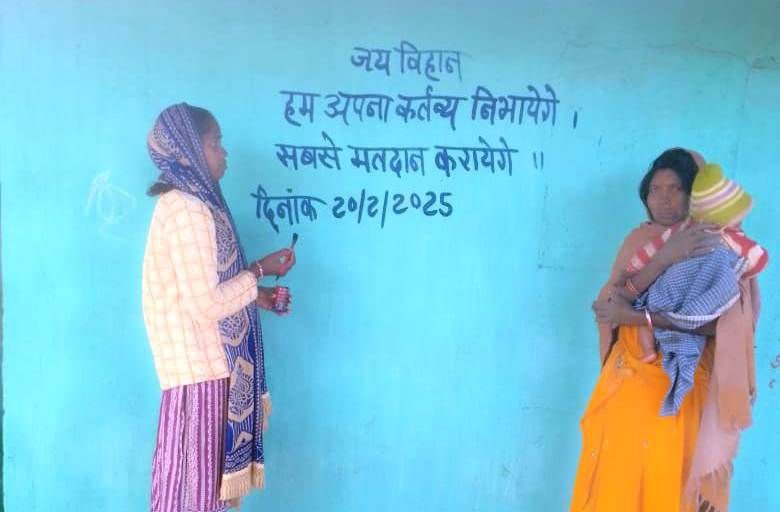 जय विहान
हम अपना कर्तव्य निभायेगे ।
सबसे मतदान करायेगे ॥
दिनांक 20/2/2025